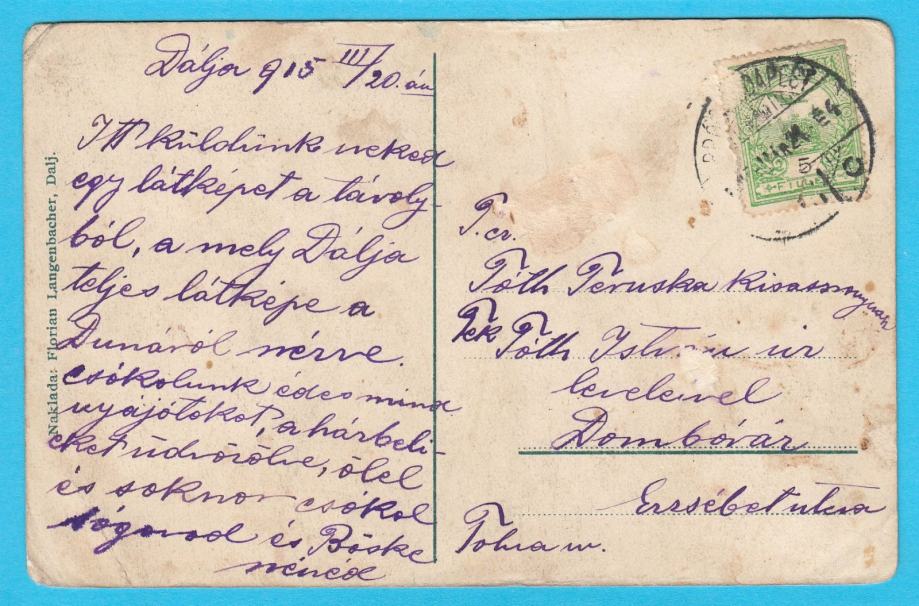 Dálja 915 III/20.án
Itt küldünk neked
egy látképet a távoly-
ból, a mely Dálja
teljes látképe a
Dunáról nézve.
csókolunk édes mind
nyájótokot, a házbeli-
eket üdvözölve, ölel
és sokszor csókol
sógorod és Böske
nénéd
Naklada: Florian Langenbacher, Dalj.
T. cz.
Tóth Teruska Kisasszonynak
Tek Tóth István úr
levelével
Dombóvár
Erzsébet utca
Tolna m.